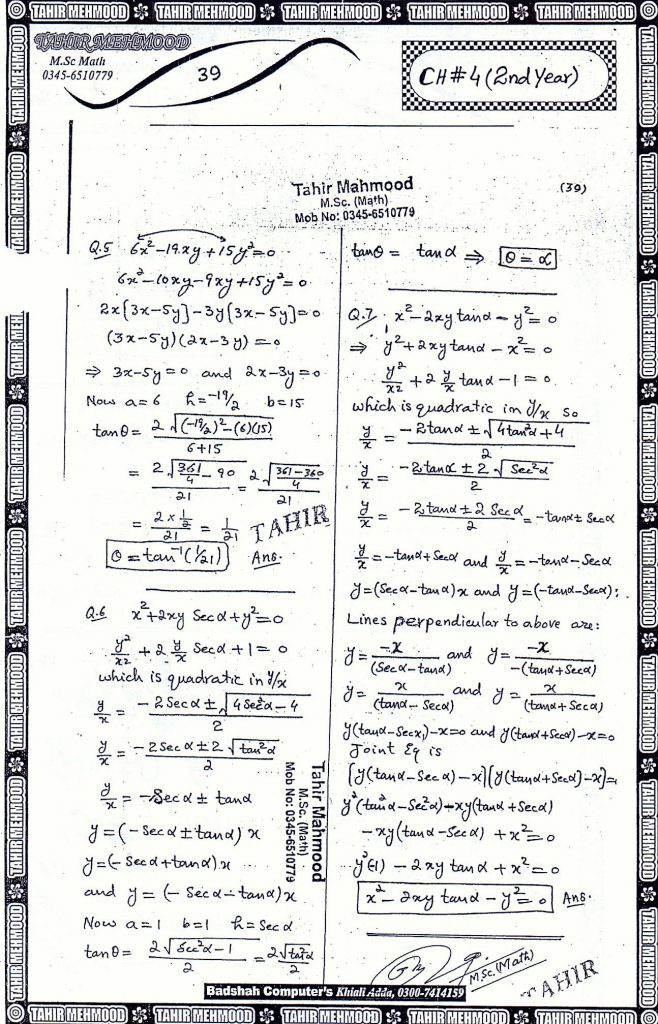 TAHIR MEHMOOD TAHIR MEHMOOD TAHIR MEHMOOD TAHIR MEHMOOD TAHIR MEHMOOD
TAHIR MEHMOOD
M.Sc Math
0345-6510779
39
CH#4 (2nd Year)
Tahir Mahmood
M.Sc. (Math)
Mob No: 0345-6510779
(39)
Q.5 6x²-19xy+15y²=0
6x²-10xy-9xy+15y²=0
2x[3x-5y]-3y[3x-5y]=0
(3x-5y)(2x-3y)=0
⇒ 3x-5y=0 and 2x-3y=0
Now a=6 h=-19/2 b=15
tanθ = 2√((-19/2)²-(6)(15)) / 6+15
= 2√(361/4 - 90) / 21 = 2√((361-360)/4) / 21
= 2×½ / 21 = 1/21
θ = tan⁻¹(1/21) Ans.
TAHIR
Q.6 x²+2xy Secα+y²=0
y²/x² + 2 y/x Secα+1=0
which is quadratic in y/x
y/x = -2Secα±√(4Sec²α-4) / 2
y/x = -2Secα±2√(tan²α) / 2
y/x = -Secα ± tanα
y=(-Secα±tanα)x
y=(-Secα+tanα)x
and y=(-Secα-tanα)x
Now a=1 b=1 h=Secα
tanθ = 2√(Sec²α-1) / 2 = 2√(tan²α) / 2
Tahir Mahmood
M.Sc. (Math)
Mob No: 0345-6510779
tanθ = tanα ⇒ θ=α
Q.7 x²-2xy tanα-y²=0
⇒ y²+2xy tanα-x²=0
y²/x² + 2 y/x tanα-1=0
which is quadratic in y/x so
y/x = -2tanα±√(4tan²α+4) / 2
y/x = -2tanα±2√(Sec²α) / 2
y/x = -2tanα±2Secα / 2 = -tanα±Secα
y/x = -tanα+Secα and y/x = -tanα-Secα
y=(Secα-tanα)x and y=(-tanα-Secα):
Lines perpendicular to above are:
y = -x / (Secα-tanα) and y = -x / -(tanα+Secα)
y = x / (tanα-Secα) and y = x / (tanα+Secα)
y(tanα-Secα)-x=0 and y(tanα+Secα)-x=0
Joint Eq is
[y(tanα-Secα)-x][y(tanα+Secα)-x]=
y²(tan²α-Sec²α)-xy(tanα+Secα)
-xy(tanα-Secα)+x²=0
y²(-1)-2xy tanα+x²=0
x²-2xy tanα-y²=0 Ans.
M.Sc. (Math)
TAHIR
Badshah Computer's Khiali Adda, 0300-7414159
TAHIR MEHMOOD TAHIR MEHMOOD TAHIR MEHMOOD TAHIR MEHMOOD TAHIR MEHMOOD